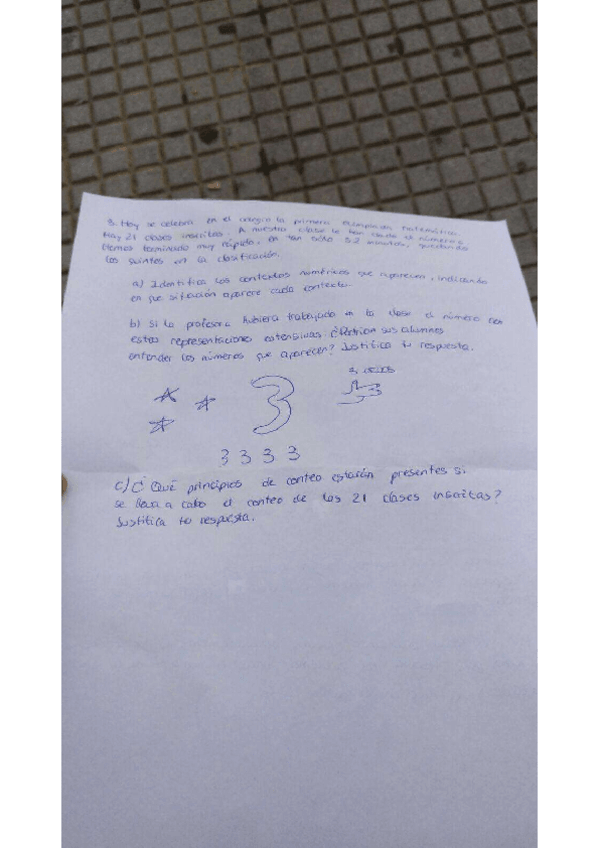 3. Hoy se celebra en el colegio la primera matemática.
Hay 21 clases inscritas. A nuestra clase le han dado el número
Hemos terminado muy rápido, en tan sólo 52 minutos, quedando
los quintos en la clasificación.
a) Identifica los contextos numéricos que aparecen, indicando
en que situación aparece cada contexto.
b) Si la profesora hubiera trabajado en la clase el número con
estas representaciones extensivas ¿Podrían sus alumnos
entender los números que aparecen? Justifica tu respuesta.
3
3 3 3 3
c) ¿Qué principios de conteo estarán presentes si
se lleva a cabo el conteo de las 21 clases inscritas?
Justifica tu respuesta.